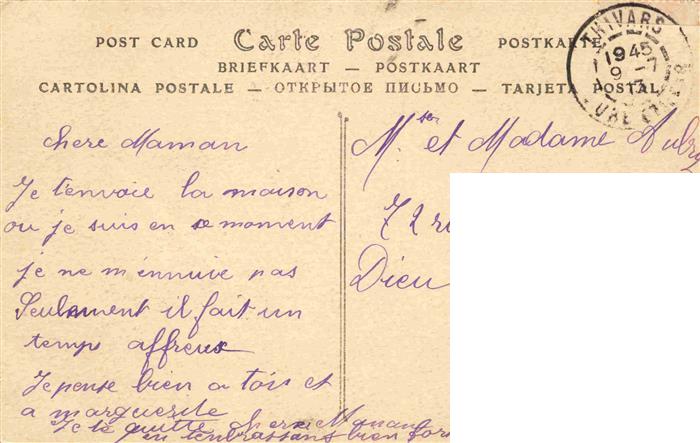 POST CARD Carte Postale POSTKARTE
BRIEFKAART — POSTKAART
CARTOLINA POSTALE — ОТКРЫТОЕ ПИСЬМО — TARJETA POSTAL
THIVARS
1945
9 - 7
13
EURE
chere Maman
Je t'envoie la maison
ou je suis en se moment
je ne m'énnuie pas
Seulement il fait un
temps affreux
Je pense bien a toi et
a marguerite
Je te quitte chere Maman
en tembrassant bien for
Mr et Madame Aubry
72 ru
Dieu